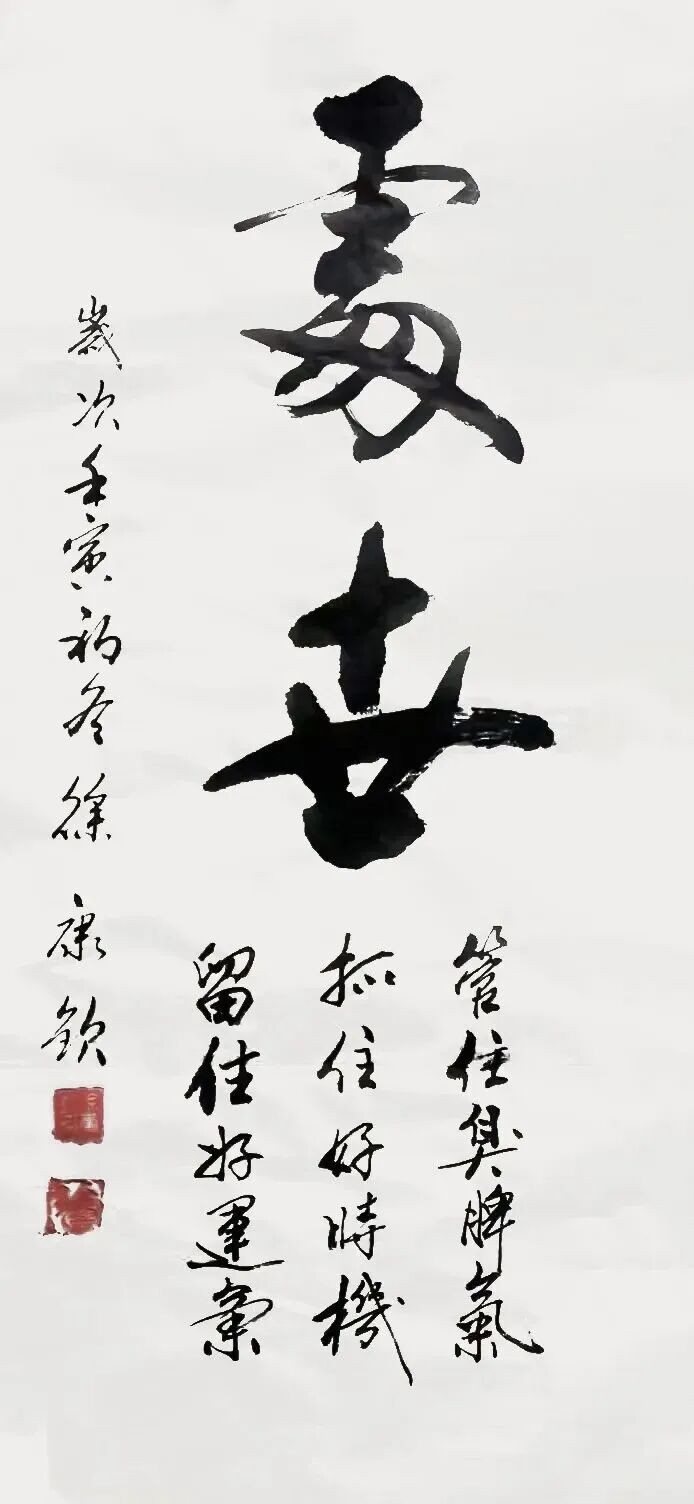 處世
管住臭脾氣
抓住好時機
留住好運氣
歲次壬寅初冬徐康欽